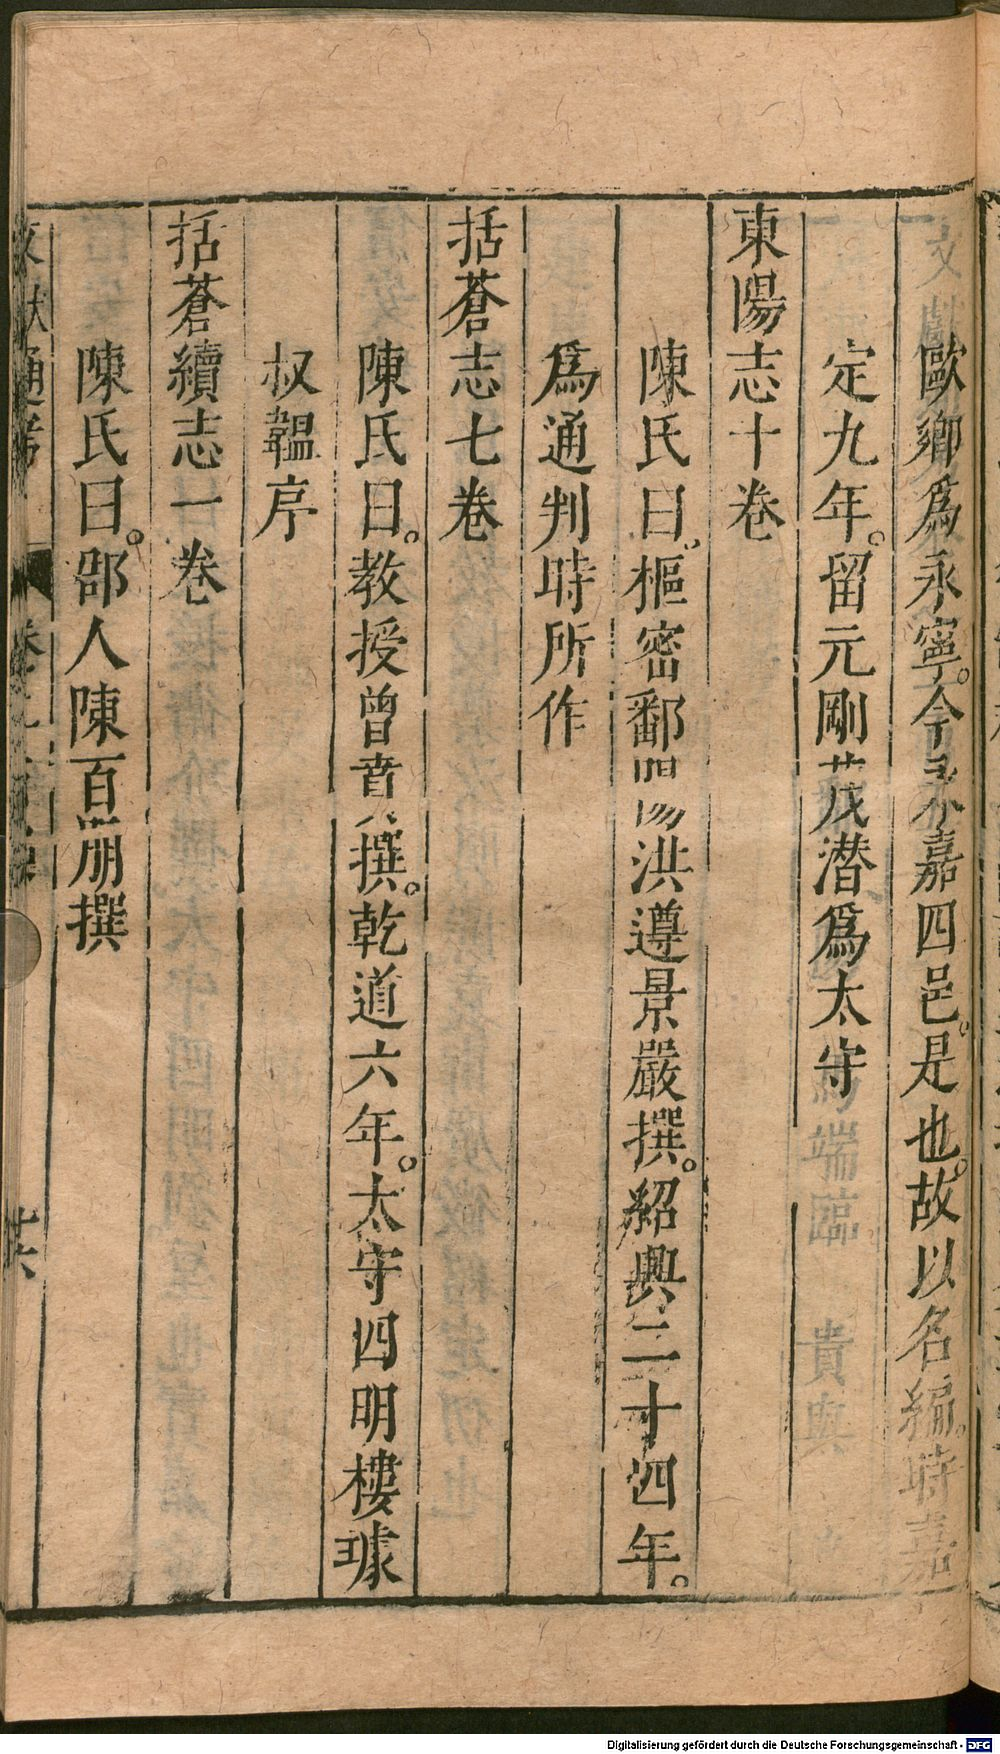 歐鄉爲永寧。今永嘉四邑。是也。故以名編。時嘉
定九年。留元剛茂潜爲太守
東陽志十卷
陳氏曰。樞密鄱陽洪遵景嚴撰。紹興二十四年。
爲通判時所作
括蒼志七卷
陳氏曰。教授曾賁撰。乾道六年。太守四明樓璩
叔韞序
括蒼續志一卷
陳氏曰。郡人陳百朋撰
文獻通考
Digitalisierung gefördert durch die Deutsche Forschungsgemeinschaft - DFG